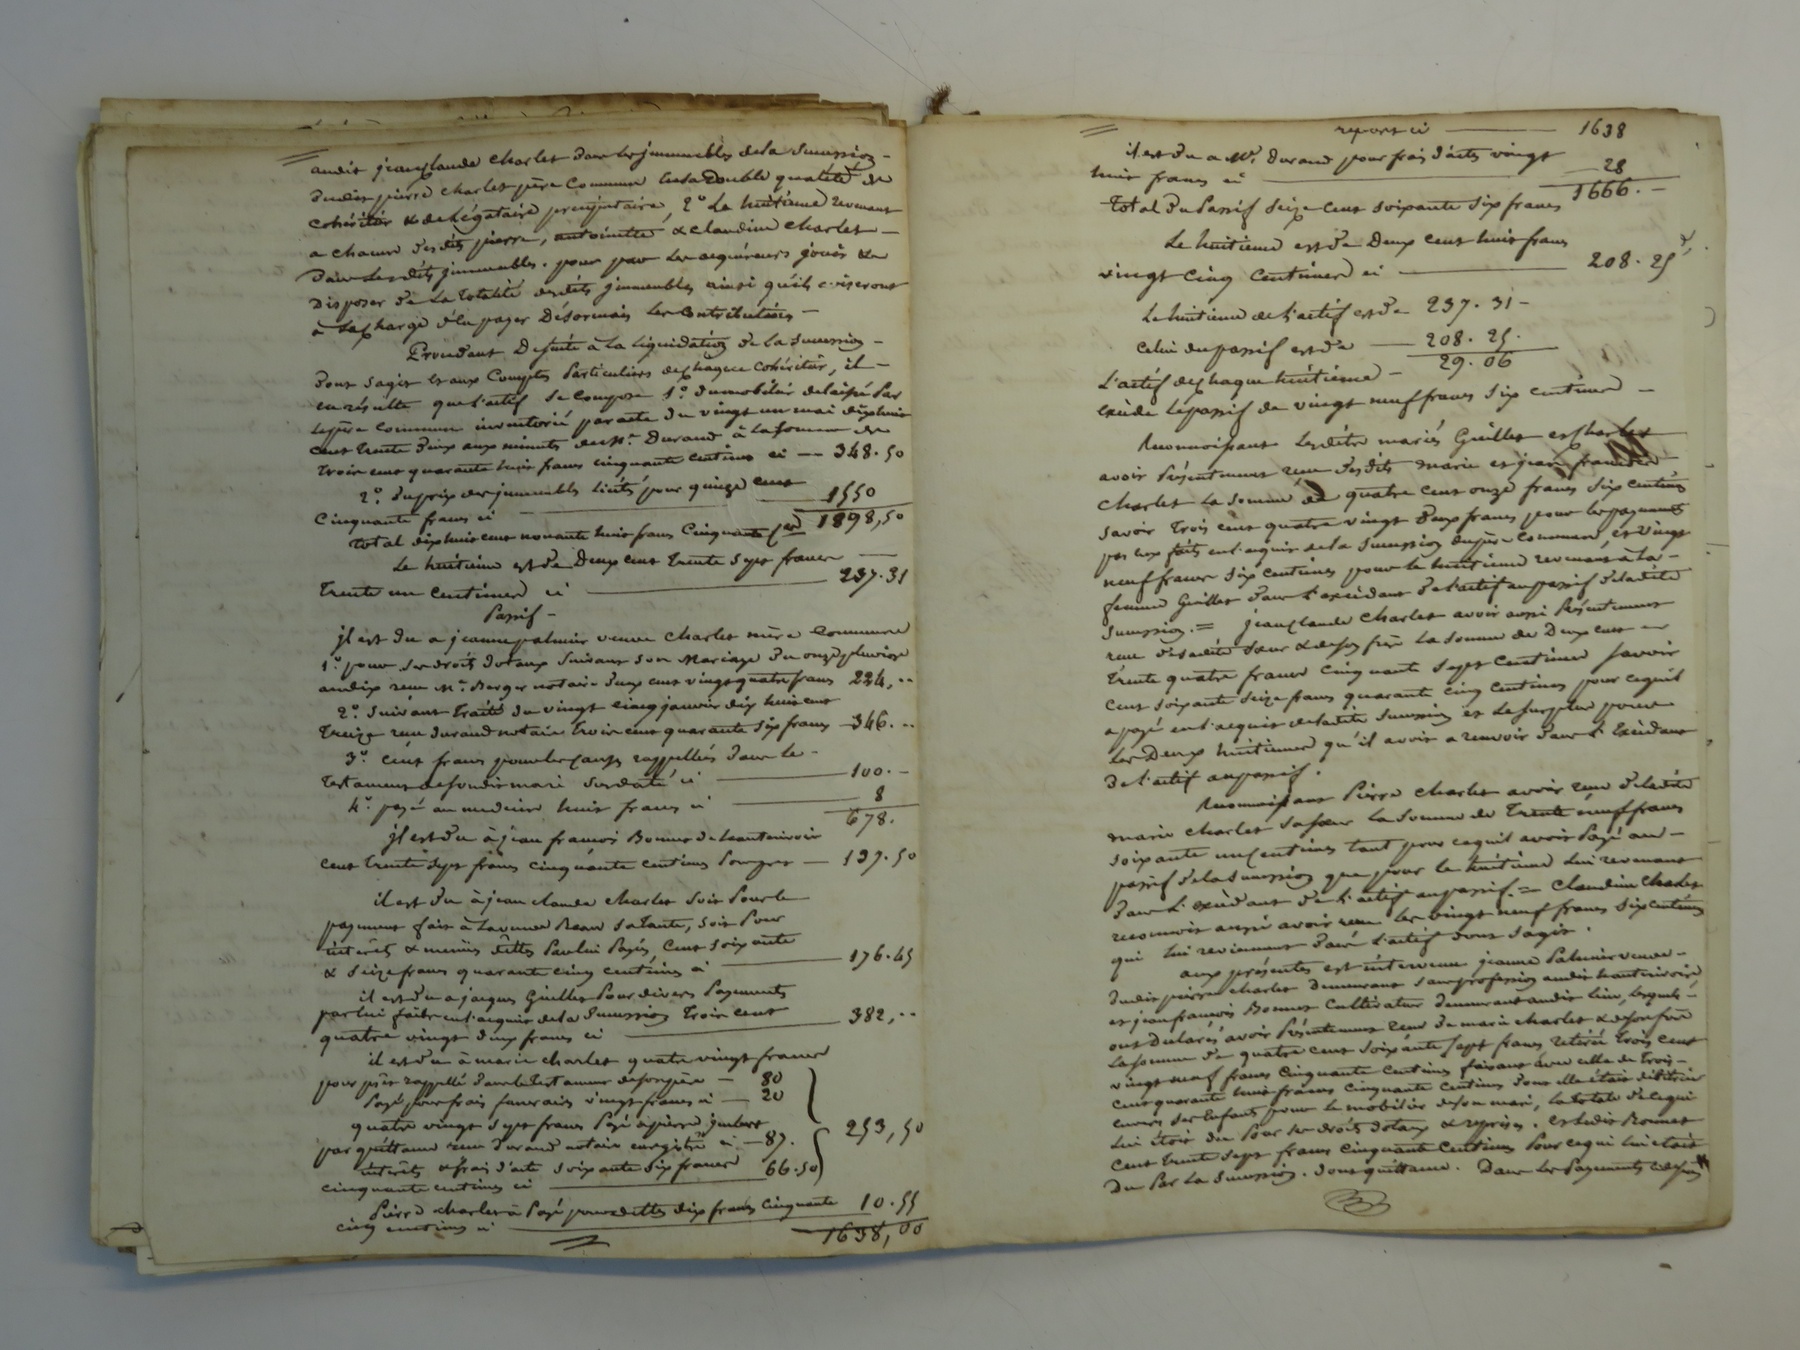 audit jean claude Charlet dans les immeubles de la succession
dudit pierre Charlet père commun en sa double qualité de
cohéritier & de légataire preciputaire, 2° Le huitième revenant
a chacun desdits pierre, antoinette & claudine Charlet
dans lesdits jmmeubles. pour par les acquéreurs jouir &
disposer de la totalité desdits jmmeubles ainsi qu'ils aviseront
à la charge d'en payer Désormais les Contributions
Procédant Desuite à la liquidation de la succession
dont s'agit et aux Comptes particuliers de chaque cohéritier, il
en résulte que l'actif se compose 1° du mobilier delaissé par
le père commun inventorié par acte du vingt un mai dix huit
cent trente deux aux minutes de Me. Durand à la somme de
trois cent quarante huit francs cinquante centimes ci — 348. 50
2°. du prix des jmmeubles licités pour quinze cent
Cinquante francs ci 1550
total dix huit cent nonante huit francs Cinquante ces 1898,50
Le huitième est de Deux cent trente sept francs
trente un centimes ci 237. 31
Passif
jl est du a jeanne palmier veuve Charlet mère Commune
1° pour ses droits dotaux suivant son Mariage du onze pluviose
an dix reçu Me. Berger notaire deux cent vingt quatre francs 224, ..
2°. suivant traité du vingt cinq janvier dix huit cent
treize reçu durand notaire trois cent quarante six francs 346. ..
3° cent francs pour les causes rappellées dans le
testament de son dit mari susdaté ci 100. -
4°. payé au medecin huit francs ci 8
678.
jl est du à jean francois Bonnet de hauterivoire
cent trente sept francs cinquante centimes — 137. 50
il est du à jean claude Charlet soit pour le
payement fait à la veuve , soit pour
intérêts & menues dettes par lui payés, Cent soixante
& seize francs quarante cinq centimes ci 176. 45
il est du a jacques Guillet pour divers payements
par lui faits en l'acquit de la succession trois cent
quatre vingt deux francs ci 382, ..
il est du à marie Charlet quatre vingt francs
pour prêt rappellé dans le testament de son père — 80
payé pour frais funeraires vingt francs ci — 20
quatre vingt sept francs payé à pierre jmbert
par quittance reçu Durand notaire enregistré ci — 87. 253, 50
intérêts & frais d'acte soixante six francs
cinquante centimes ci 66. 50
Pierre Charlet a payé pour dettes dix francs cinquante
cinq centimes ci 10. 55
1638, 00
report ci — 1638
il est du a Me. Durand pour frais d'actes vingt
huit francs ci 28
total du Passif seize cent soixante six francs 1666. -
Le huitième est de Deux cent huit francs
vingt cinq Centimes ci 208. 25
Le huitième de l'actif est de 237. 31 -
celui du passif est de — 208. 25.
29. 06
L'actif de chaque huitième
excède le passif de vingt neuf francs six centimes
Reconnoissant lesdits mariés Guillet et Charlet
avoir présentement reçu desdits marie et jean
Charlet la somme de quatre cent onze francs six centimes
savoir trois cent quatre vingt deux francs pour les payements
par eux faits en l'acquit de la succession du père commun, et vingt
neuf francs six centimes pour le huitième revenant à la
femme Guillet dans l'excédant de l'actif au passif de ladite
succession. = jean claude Charlet avoir aussi présentement
reçu de sadite soeur & de son frère la somme de Deux cent
trente quatre francs cinquante sept centimes savoir
cent soixante seize francs quarante cinq centimes pour ce qu'il
a payé en l'acquit de ladite succession et le surplus pour
les Deux huitièmes qu'il avoit a recevoir dans l'Excédant
de l'actif au passif.
Reconnoissant Pierre Charlet avoir reçu de ladite
marie Charlet sa soeur la somme de trente neuf francs
soixante un centimes tant pour ce qu'il avoit payé au
passif de la succession que pour le huitième lui revenant
dans l'excédant de l'actif au passif. = Claudine Charlet
reconnoit aussi avoir reçu les vingt neuf francs six centimes
qui lui reviennent dans l'actif dont s'agit.
aux présentes est intervenue jeanne Palmier veuve
dudit pierre Charlet demeurant sans profession audit hauterivoire
et jean francois Bonnet Cultivateur demeurant audit lieu, lesquels
ont déclarés avoir présentement reçu de marie Charlet & de son frère
la somme de quatre cent soixante sept francs trois cent
vingt neuf francs cinquante centimes faisant avec celle de trois
cent quarante huit francs cinquante centimes dont elle était débitrice
envers ses Enfants pour le mobilier de son mari, la totalité de ce qui
lui étoit du pour ses droits dotaux & reprises. et ledit Bonnet
cent trente sept francs cinquante Centimes pour ce qui lui étoit
du par la succession. dont quittance. Dans les payements